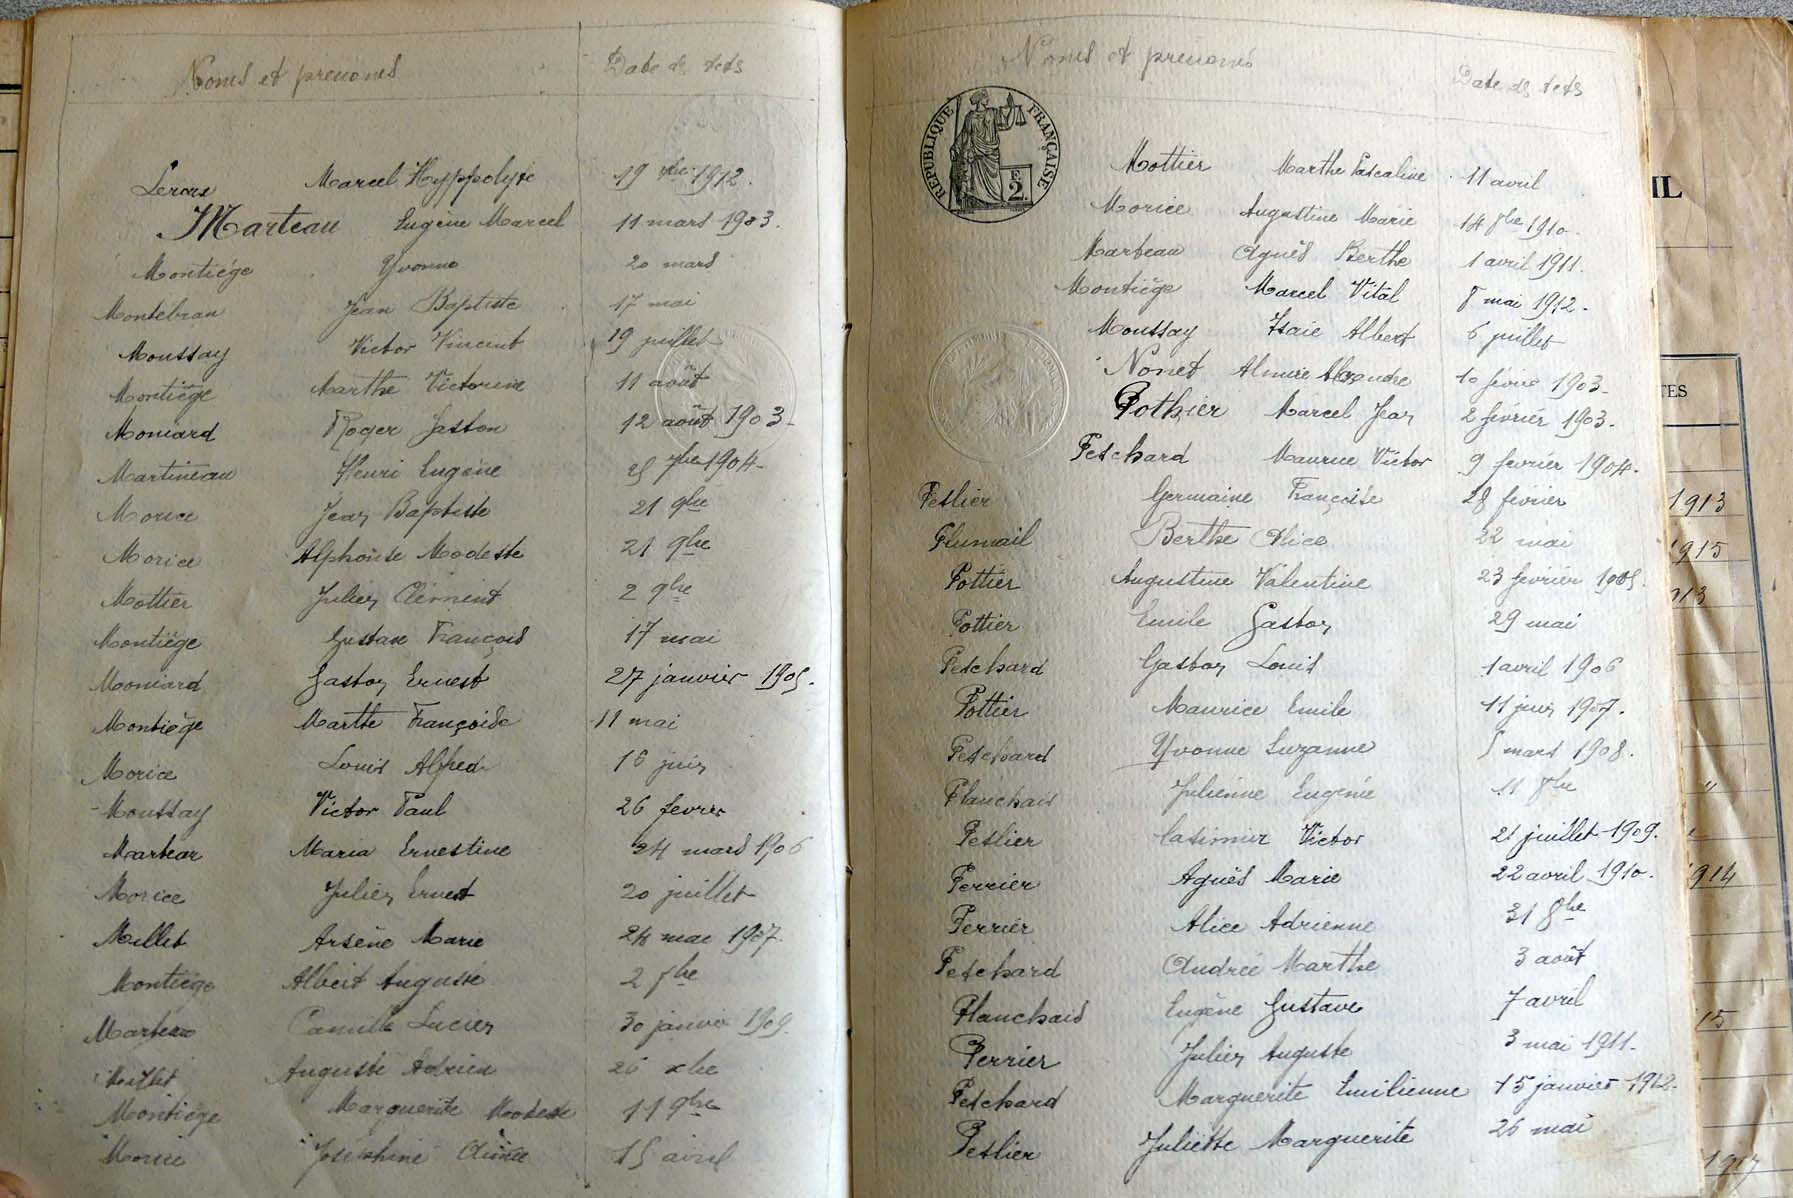 Noms et prenoms Date des acts
Leroux Marcel Hyppolyte 19 xbre 1912.
Marteau Eugène Marcel 11 mars 1903.
Montiége Yvonne 20 mars
Montebran Jean Baptiste 17 mai
Moussay Victor Vincent 19 juillet
Montiége Marthe Victorine 11 août
Moniard Roger Gaston 12 août 1903
Martineau Henri Eugène 25 7bre 1904
Morice Jean Baptiste 21 9bre
Morice Alphonse Modeste 21 9bre
Mottier Julien Clément 2 9bre
Montiége Gustave François 17 mai
Moniard Gaston Ernest 27 janvier 1905.
Montiége Marthe Françoise 11 mai
Morice Louis Alfred 16 juin
Moussay Victor Paul 26 fevrier
Marteau Maria Ernestine 24 mars 1906
Morice Julien Ernest 20 juillet
Millet Arsène Marie 24 mai 1907.
Montiége Albert Auguste 2 8bre
Marteau Camille Lucien 30 janvier 1909.
Millet Auguste Adrien 26 xbre
Montiége Marguerite Modeste 11 9bre
Morice Joséphine Aimée 15 avril
Noms et prenoms Date des acts
RÉPUBLIQUE FRANÇAISE
F. 2.
Mottier Marthe Pascaline 11 avril
Morice Augustine Marie 14 8bre 1910.
Marteau Agnès Berthe 1 avril 1911.
Montiége Marcel Vital 8 mai 1912.
Moussay Isaie Albert 6 juillet
Nonet Almire Alexandre 10 février 1903
Pothier Marcel Jean 2 février 1903.
Petchard Maurice Victor 9 fevrier 1904.
Peslier Germaine Françoise 28 février
Plumail Berthe Alice 22 mai
Pottier Augustine Valentine 23 février 1905.
Pottier Emile Gaston 29 mai
Petchard Gaston Louis 1 avril 1906
Pottier Maurice Emile 11 juin 1907.
Petchard Yvonne Suzanne 5 mars 1908.
Planchais Julienne Eugénie 11 8bre
Peslier Casimir Victor 21 juillet 1909.
Perrier Agnès Marie 22 avril 1910.
Perrier Alice Adrienne 31 8bre
Petchard Andrée Marthe 3 août
Planchais Eugène Gustave 7 avril
Perrier Julien Auguste 3 mai 1911.
Petchard Marguerite Emilienne 15 janvier 1912.
Peslier Juliette Marguerite 26 mai
IL
TES
1913
1915
913
"
1914
15
1917